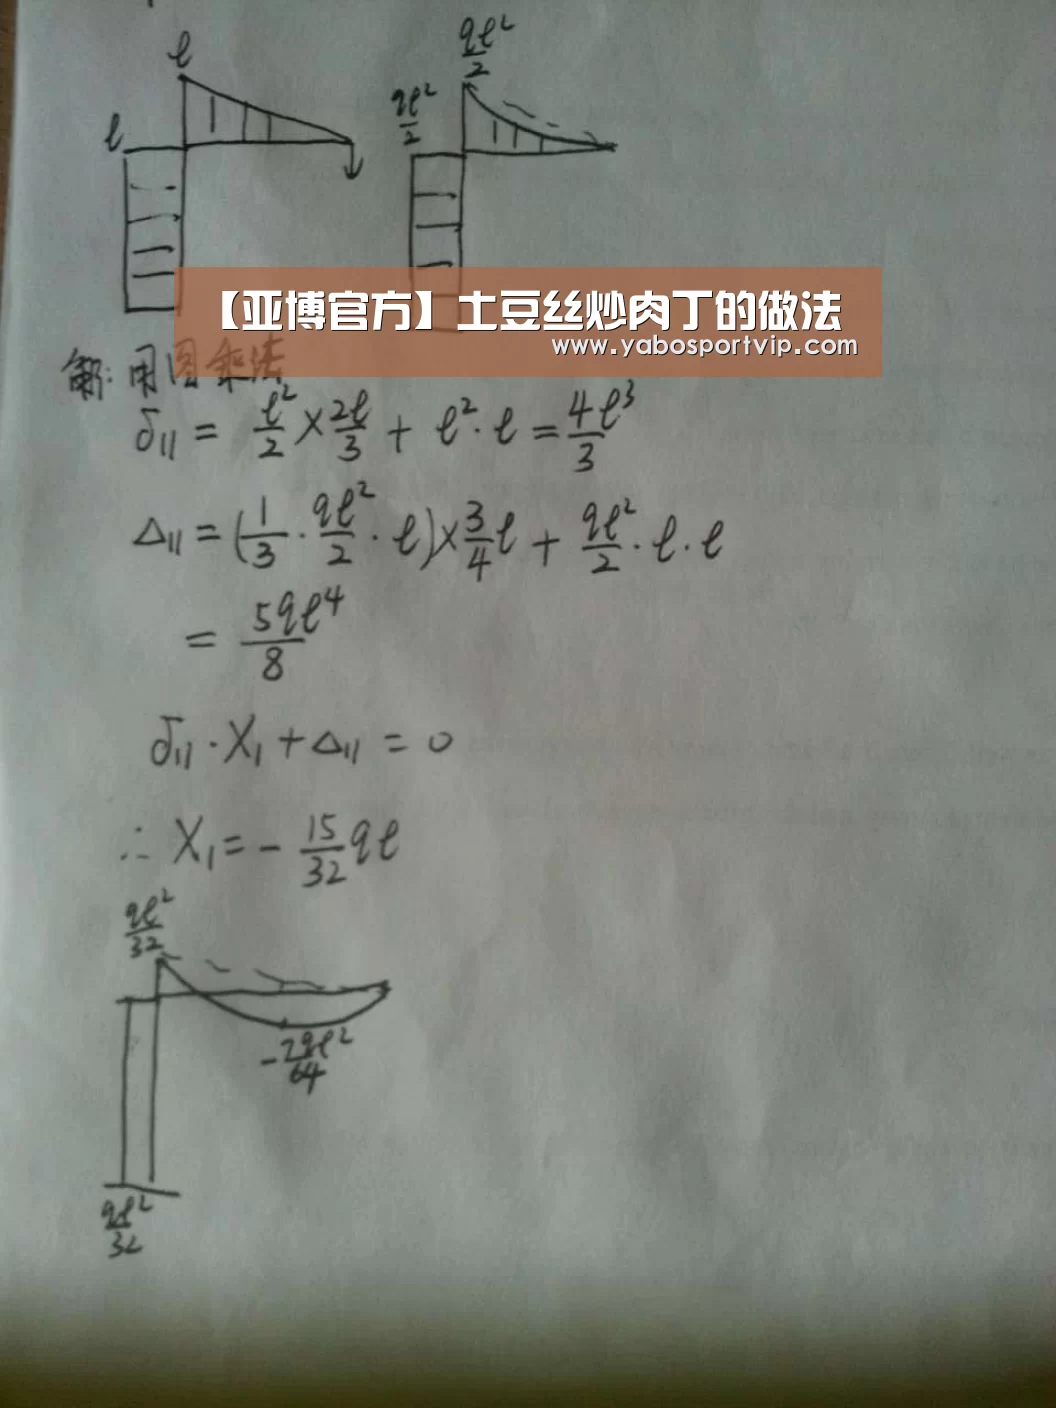 l
l
ql²/2
ql²/2
【亚博官方】土豆丝炒肉丁的做法
www.yabosportvip.com
解: 用图乘法
δ₁₁ = l²/2 × 2l/3 + l²·l = 4l³/3
Δ₁₁ = (1/3 · ql²/2 · l) × 3/4 l + ql²/2 · l · l
= 5ql⁴/8
δ₁₁ · X₁ + Δ₁₁ = 0
∴ X₁ = - 15/32 ql
ql²/32
- 7ql²/64
ql²/32